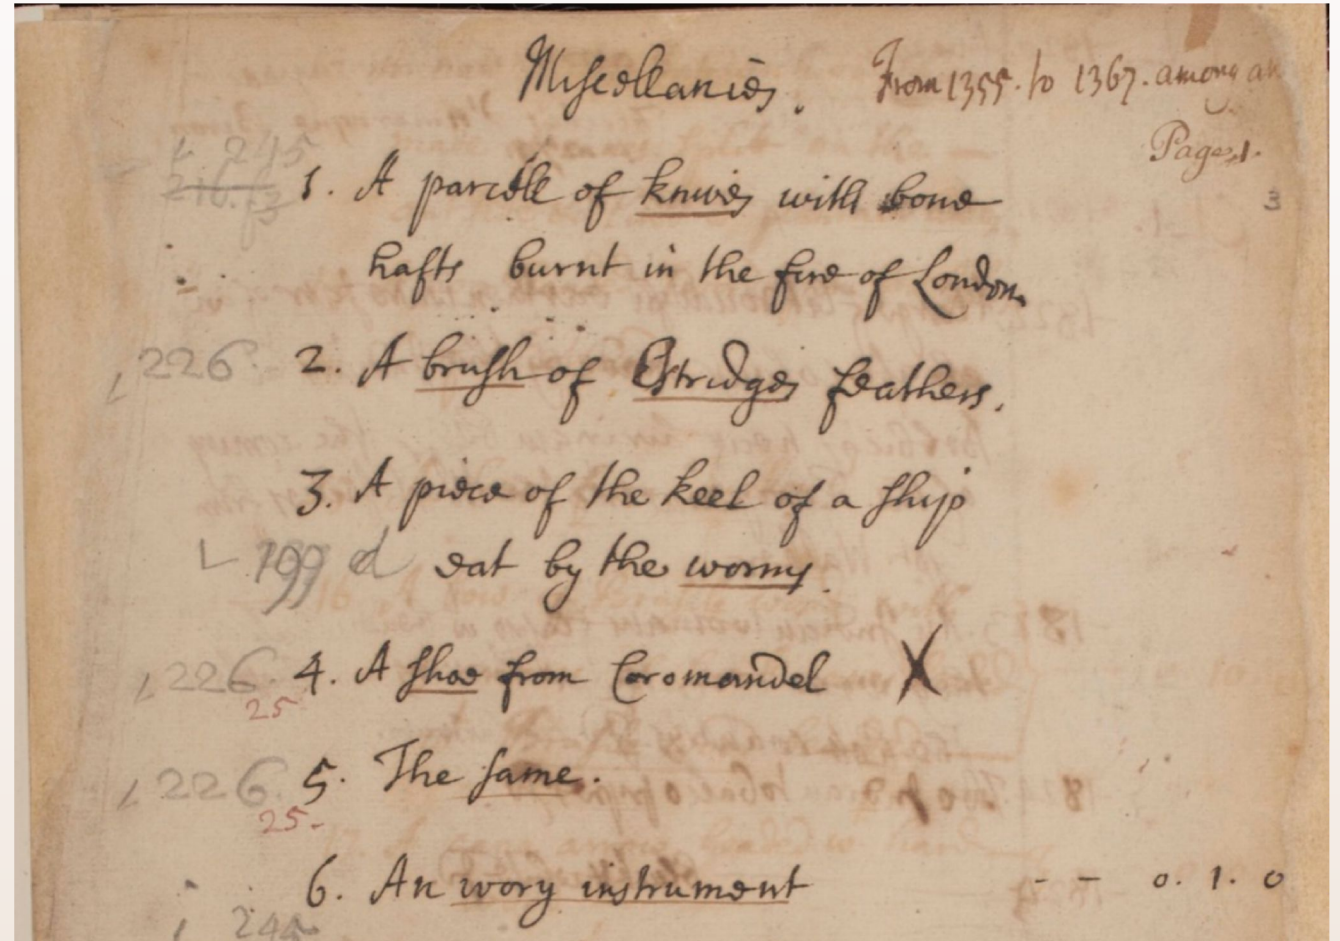 Miscellanies. From 1355. to 1367. among an
Page 1.
245
216.
1. A parcell of knives with bone
3
hafts burnt in the fire of London.
226. 2. A brush of Estridges feathers.
3. A piece of the keel of a ship
199 d eat by the worms.
226. 4. A shoe from Coromandel X
25
226. 5. The same.
25.
6. An ivory instrument - - 0. 1. 0
245